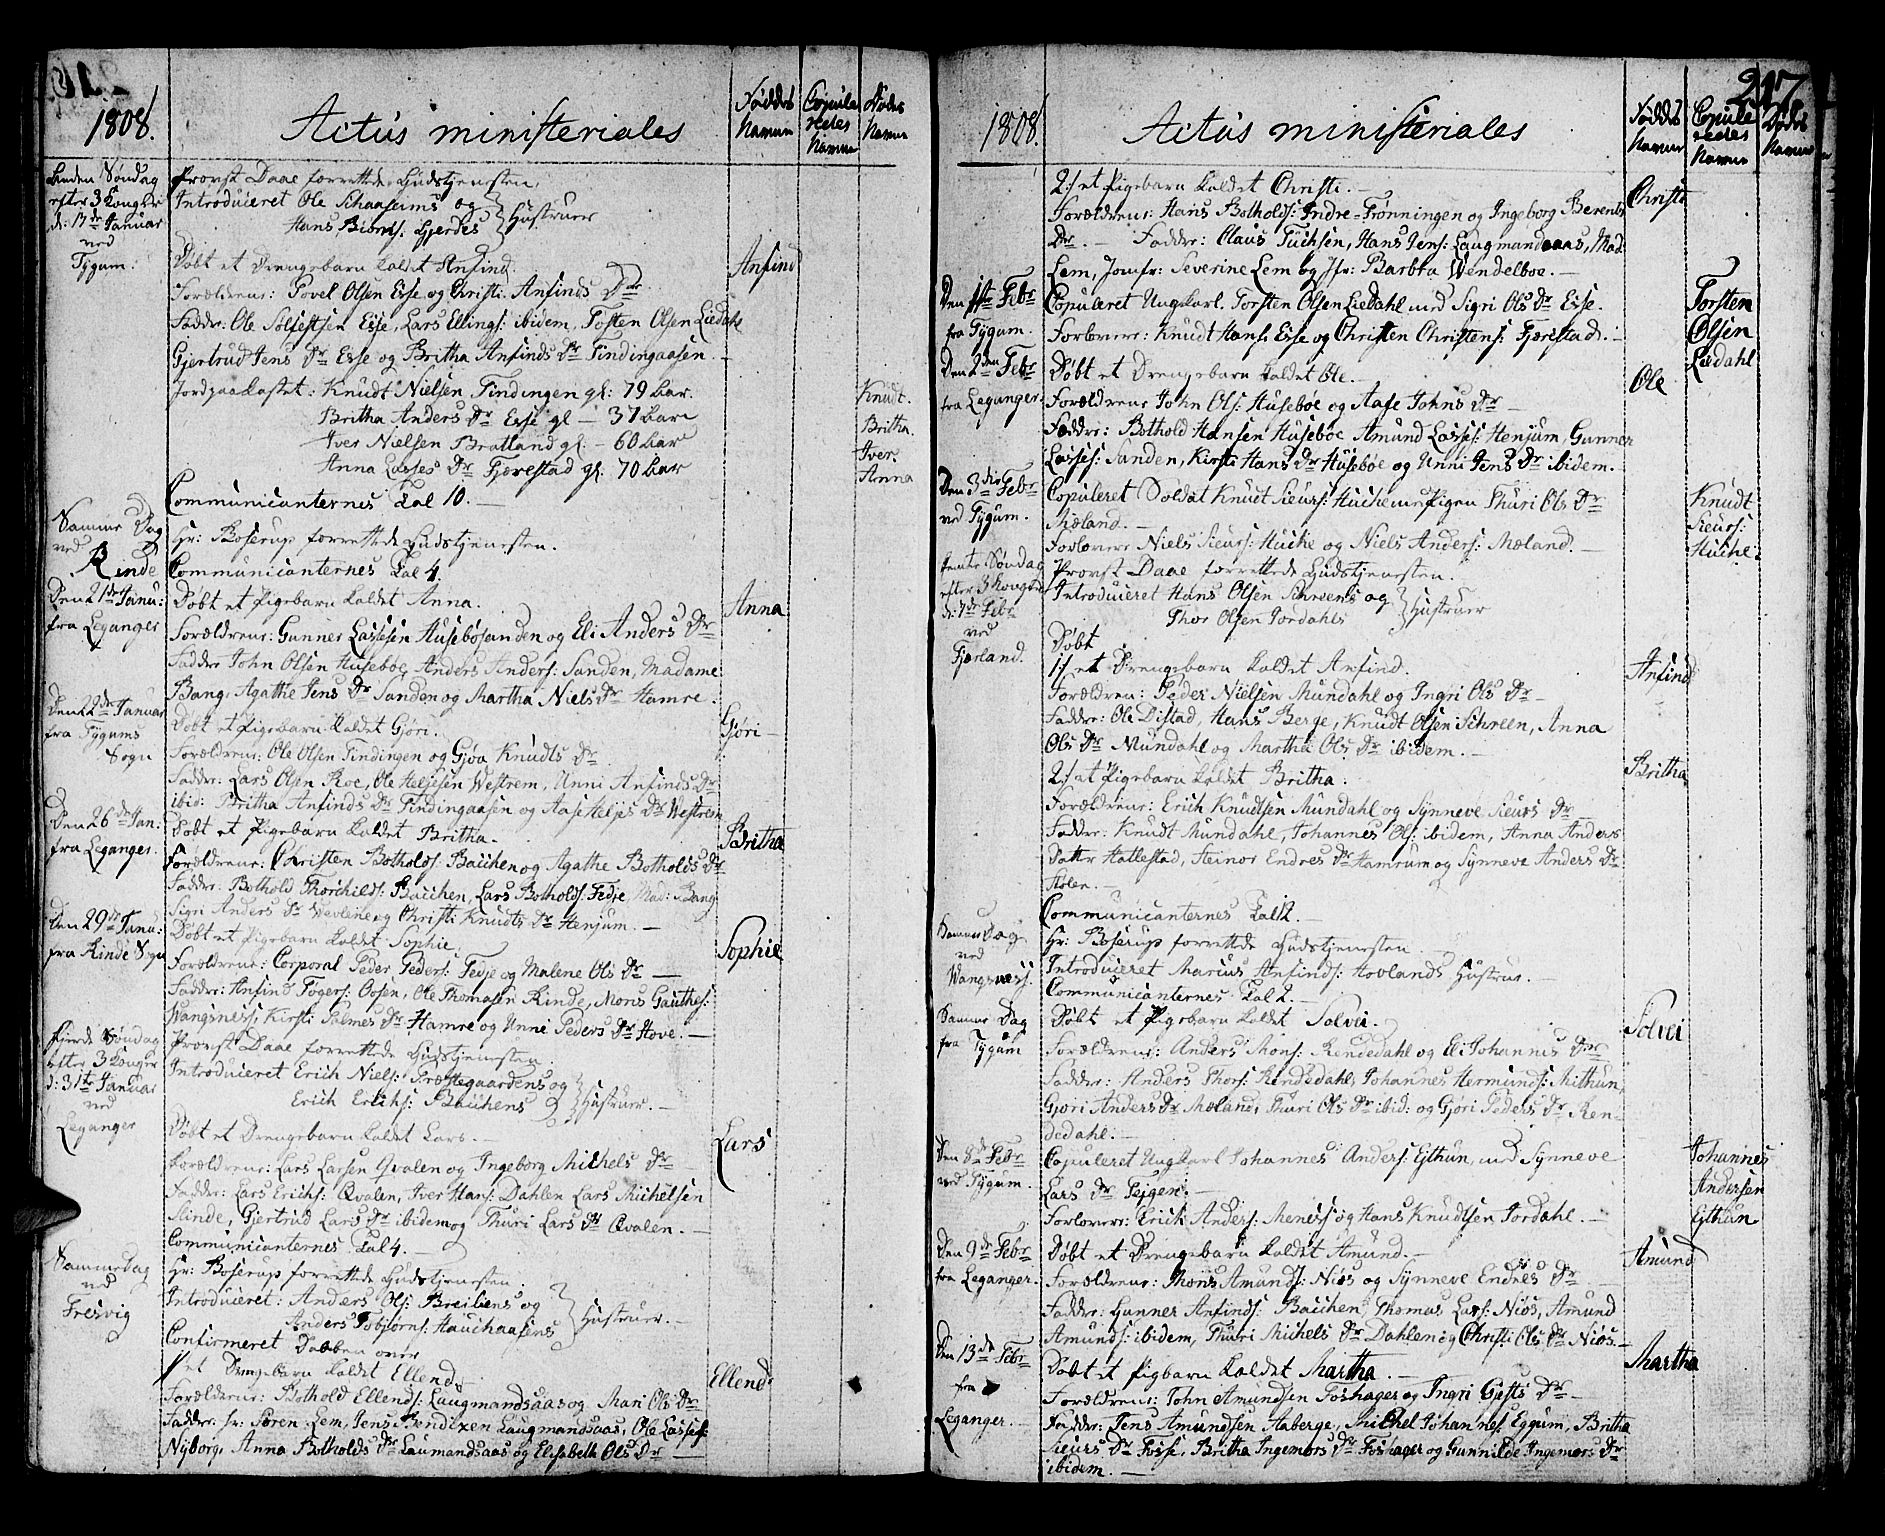 1808.
Actus ministeriales
Føddes Navne
Copuleredes Navne
Dødes Navne
Anden Søndag efter 3 Konger d: 17de Januar ved Tygum.
Provst Daae forrettede Gudstjenesten,
Introduceret Ole Schaaseims og
Hans Biørns: Gjerdes } Hustruer
Døbt et Drengebarn kaldet Anfind.
Anfind
Forældrene: Povel Olsen Esse og Christi Anfinds Dr.
Fadder: Ole Solfestsen Esse, Lars Ellings: ibidem, Tosten Olsen Liedahl
Gjertrud Jens Dr Esse og Britha Anfinds Dr Tindingaasen. —
Jordpaakastet: Knudt Nielsen Tindingen gl: 79 Aar.
Knudt.
Britha Anders Dr Esse gl — 37 Aar
Britha.
Iver Nielsen Bratland gl: — 60 Aar
Iver.
Anna Lasses Dr Fjærestad gl: 70 Aar
Anna
Communicanternes Tal 10. —
Samme Dag ved Rinde
Hr: Boserup forrettede Gudstjenesten.
Communicanternes Tal 4.
Den 21de Janu: fra Leganger
Døbt et Pigebarn kaldet Anna.
Anna
Forældrene: Gunner Lassesen Husebøsanden og Eli Anders Dr
Fadder John Olsen Husebøe, Anders Anders: Sanden, Madame
Bang, Agathe Jens Dr Sanden og Martha Niels Dr Hamre.
Den 22de Januar fra Tygums Sogn
Døbt et Pigebarn kaldet Gjøri.
Gjøri
Forældrene: Ole Olsen Tindingen og Gjøa Knudts Dr
Fadder: Lars Olsen Roe, Ole Heljesen Westrem, Unni Anfinds Dr
ibid: Britha Anfinds Dr Tindingaasen og Aase Heljes Dr Westrem
Den 26de Jan. fra Leganger.
Døbt et Pigebarn kaldet Britha.
Britha
Forældrene: Christen Botholds: Bauhen og Agathe Botholds Dr
Fadder: Bothold Thorchilds: Bauhen, Lars Botholds: Fedje, Mad: Bang
Sigri Anders Dr og Christi Knudts Dr Henjum. —
Den 29de Janu: fra Rinde Sogn
Døbt et Pigebarn kaldet Sophie.
Sophie
Forældrene: Corporal Peder Peders: Fedje og Malene Ols Dr —
Fadder: Anfind Tøgers: Oosen, Ole Thomasen Rinde, Mons Gauthes:
Wangsness, Kirsti Palmes Dr Hamre og Unni Peders Dr Hove. —
Fjerde Søndag efter 3 Konger d: 31te Januar ved Leganger
Provst Daae forrettede Gudstjenesten.
Introduceret Erich Niels: Præstegaardens og
Erich Erichs: Bauhens } Hustruer. —
Døbt et Drengebarn kaldet Lars. —
Lars
Forældrene: Lars Larsen Qvalen og Ingeborg Michels Dr
Fadder: Lars Erichs: Qvalen, Iver Hans: Dahlen Lars Michelsen
Slinde, Gjertrud Lars Dr ibidem og Thuri Lars Dr Qvalen. —
Communicanternes Tal 4. —
Samme Dag ved Fresvig
Hr: Boserup forrettede Gudstjenesten.
Introduceret: Anders Ols: Breiliens og
Anders Tobjørns: Hauchaasens } Hustruer. —
Confirmeret Daaben over
1/ et Drengebarn kaldet Ellend.
Ellend
Forældrene: Bothold Ellends: Laugmandsaas og Mari Ols Dr
Fadder: Hr: Søren Lem, Jens Bendixen Laugmandsaas, Ole Lasses:
Nyborg, Anna Botholds Dr Laumandsaas og Elisabeth Ols Dr —
217
1808.
Actus ministeriales
Føddes Navne
Copuleredes Navne
Dødes Navne
2:/ et Pigebarn kaldet Christi. —
Christi
Forældrene: Hans Botholds: Indre-Frønningen og Ingeborg Berents
Dr. — Fadder: Claus Tüchsen, Hans Jens: Laugmandsaas, Mad:
Lem, Jomfr: Severine Lem og Jfr: Barbra Wendelboe. —
Den 1ste Febr fra Tygum.
Copuleret Ungkarl Torsten Olsen Liedahl med Sigri Ols Dr Esse.
Torsten Olsen Liedahl
Forlovere: Knudt Hans: Esse og Christen Christens: Fjærestad. —
Den 2den Febr fra Leganger.
Døbt et Drengebarn kaldet Ole. —
Ole
Forældrene John Ols: Husebøe og Aase Johns Dr —
Fadder: Bothold Hansen Husebøe Amund Lasses: Henjum, Gunner
Lasses: Sanden, Kirsti Hans Dr Husebøe og Unni Jens Dr ibidem.
Den 3die Febr ved Tygum.
Copuleret Soldat Knudt Sieurs: Huche med Pigen Thuri Ols Dr
Mæland. —
Knudt Sieurs: Huche
Forlovere Niels Sieurs: Huche og Niels Anders: Mæland. —
Femte Søndag efter 3 Konger d: 7de Febr ved Fjærland.
Provst Daae forrettede Gudstjenesten.
Introduceret Hans Olsen Schreens og
Thor Olsen Jordahls } Hustruer
Døbt
1:/ et Drengebarn kaldet Anfind.
Anfind
Forældrene: Peder Nielsen Mundahl og Ingri Ols Dr —
Fadder: Ole Distad, Hans Berge, Knudt Olsen Schreen, Anna
Ols Dr Mundahl og Martha Ols Dr ibidem. —
2:/ et Pigebarn kaldet Britha.
Britha
Forældrene: Erich Knudtsen Mundahl og Synneve Sieurs Dr
Fadder: Knudt Mundahl, Johannes Ols: ibidem, Anna Anders
Datter Hatlestad, Steinor Endres Dr Hamrum og Synneve Anders Dr
Stølen. —
Communicanternes Tal 12. —
Samme Dag ved Wangsness.
Hr: Boserup forrettede Gudstjenesten
Introduceret Marcus Anfinds: Hovlands Hustrue.
Communicanternes Tal 2. —
Samme Dag fra Tygum
Døbt et Pigebarn kaldet Solvei.
Solvei
Forældrene: Anders Mons: Rendedahl og Eli Johannis Dr
Fadder: Anders Thors: Rendedahl, Johannes Hermunds: Mithun,
Gjøri Anders Dr Mæland, Thuri Ols Dr ibid: og Gjøri Peders Dr Ren-
dedahl. —
Den 8de Febr ved Tygum.
Copuleret Ungkarl Johannes Anders: Ejthun, med Synneve
Lars Dr Tejgen. —
Johannes Andersen Ejthun
Forlovere: Erich Anders: Menes og Hans Knudtsen Jordahl. —
Den 9de Febr fra Leganger.
Døbt et Drengebarn kaldet Amund. —
Amund
Forældrene: Mons Amunds: Nios og Synneve Endres Dr
Fadder: Gunner Anfinds: Bauhen Thomas Lars: Nios, Amund
Amunds: ibidem, Thuri Michels Dr Dahlen og Christi Ols Dr Nios. —
Den 13de Febr fra Leganger. —
Døbt et Pigebarn kaldet Martha. —
Martha
Forældrene: John Amundsen Foshager og Ingri Giefts Dr —
Fadder: Jens Amundsen Aaberge, Michel Johannes Eggum, Britha
Sieurs Dr Fosse, Britha Ingemors Dr Foshager og Gunnilde Ingemors Dr
ibidem. —